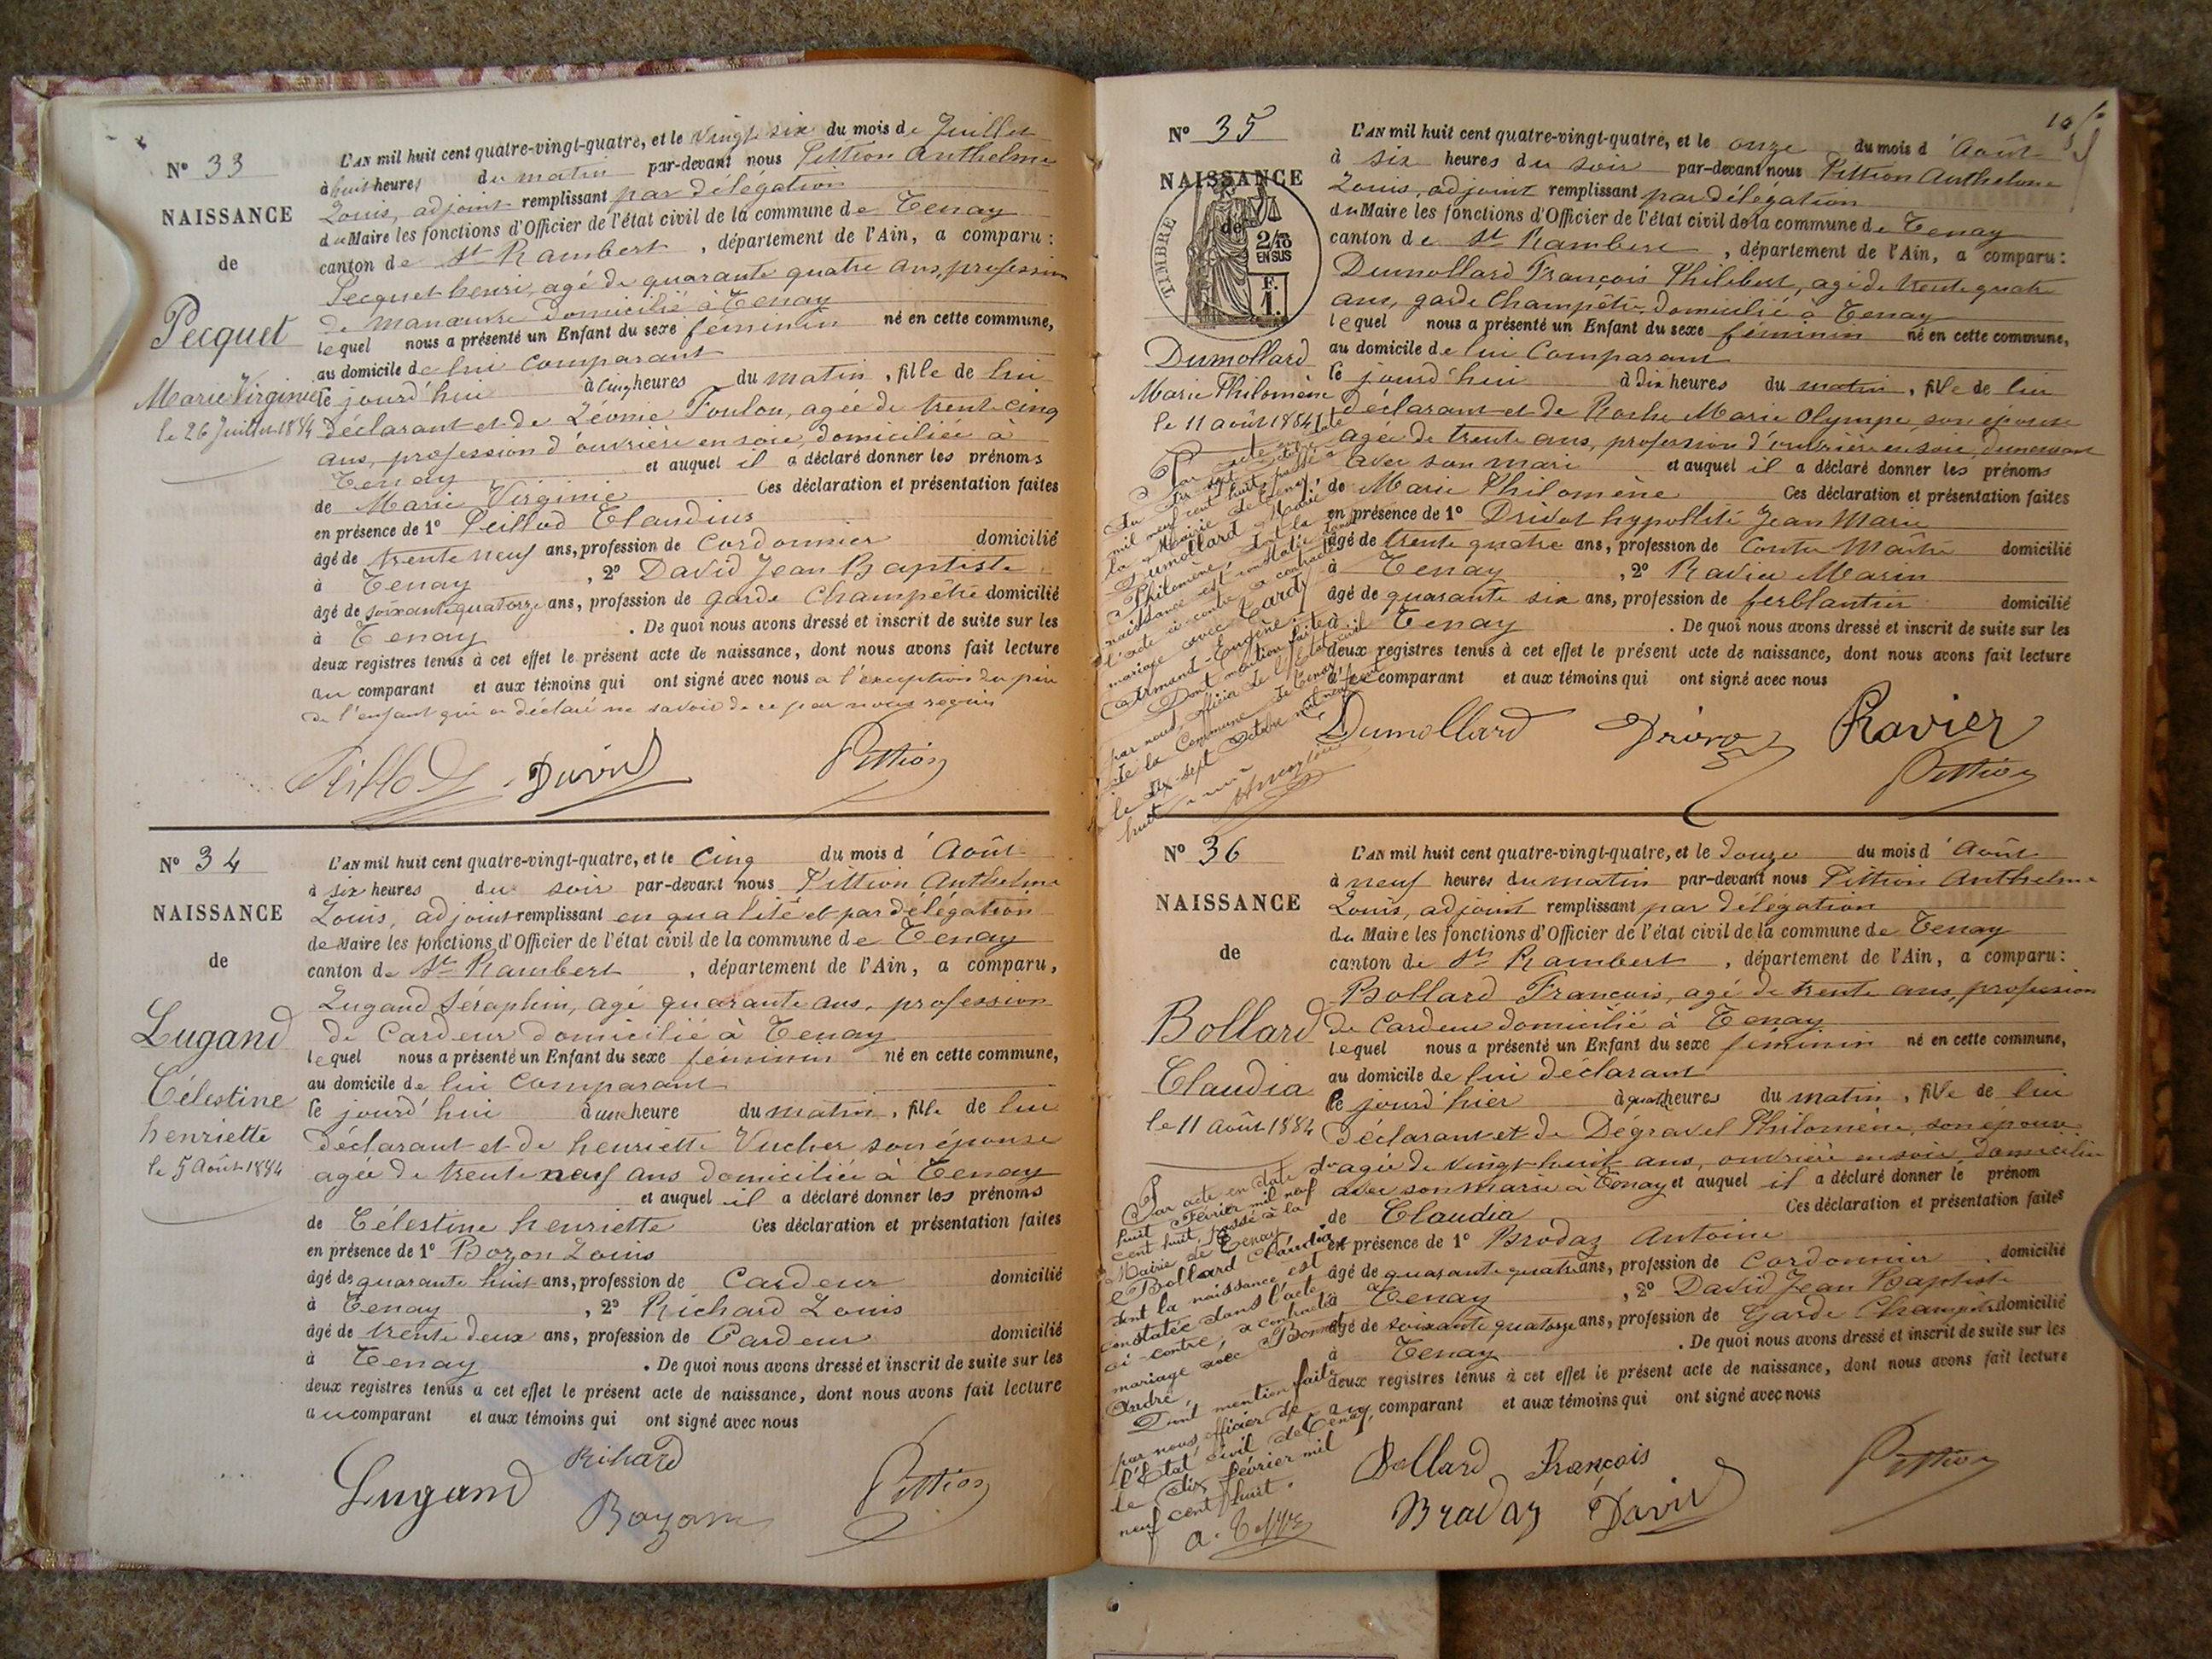 N° 33
NAISSANCE
de
Pecquet
Marie Virginie
le 26 Juillet 1884
L'AN mil huit cent quatre-vingt-quatre, et le Vingt six du mois de Juillet
à huit heures du matin par-devant nous Pittion Anthelme
Louis, adjoint remplissant par délégation
du Maire les fonctions d'Officier de l'état civil de la commune de Tenay
canton de St Rambert, département de l'Ain, a comparu :
Pecquet henri, agé de quarante quatre ans, profession
de manœuvre domicilié à Tenay
lequel nous a présenté un Enfant du sexe féminin né en cette commune,
au domicile de lui comparant
le jourd'hui à cinq heures du matin, fille de lui
déclarant et de Léonie Foulon, agée de trent cinq
ans, profession d'ouvrière en soie, domiciliée à
Tenay et auquel il a déclaré donner les prénoms
de Marie Virginie Ces déclaration et présentation faites
en présence de 1° Peillod Claudius
âgé de trente neuf ans, profession de Cordonnier domicilié
à Tenay, 2° David Jean Baptiste
âgé de soixante quatorze ans, profession de garde Champêtre domicilié
à Tenay. De quoi nous avons dressé et inscrit de suite sur les
deux registres tenus à cet effet le présent acte de naissance, dont nous avons fait lecture
au comparant et aux témoins qui ont signé avec nous a l'exception du père
de l'enfant qui a déclaré ne savoir de ce par nous requis
Peillod David Pittion
N° 34
NAISSANCE
de
Lugand
Célestine
henriette
le 5 Août 1884
L'AN mil huit cent quatre-vingt-quatre, et le Cinq du mois d'Août
à six heures du soir par-devant nous Pittion Anthelme
Louis, adjoint remplissant en qualité et par délégation
de Maire les fonctions d'Officier de l'état civil de la commune de Tenay
canton de St Rambert, département de l'Ain, a comparu,
Lugand Séraphin, agé quarante ans, profession
de Cardeur domicilié à Tenay
lequel nous a présenté un Enfant du sexe féminin né en cette commune,
au domicile de lui Comparant
le jourd'hui à une heure du matin, fille de lui
déclarant et de henriette Vucher son épouse
agée de trente neuf ans domiciliée à Tenay
et auquel il a déclaré donner les prénoms
de Célestine henriette Ces déclaration et présentation faites
en présence de 1° Bozon Louis
âgé de quarante huit ans, profession de Cardeur domicilié
à Tenay, 2° Richard Louis
âgé de trente deux ans, profession de Cardeur domicilié
à Tenay. De quoi nous avons dressé et inscrit de suite sur les
deux registres tenus à cet effet le présent acte de naissance, dont nous avons fait lecture
au comparant et aux témoins qui ont signé avec nous
Lugand Rihard Bozon Pittion
N° 35
NAISSANCE
de
TIMBRE
2/10
EN SUS
F.
1.
Dumollard
Marie Philomène
le 11 août 1884
L'AN mil huit cent quatre-vingt-quatre, et le onze du mois d'Août
à six heures du soir par-devant nous Pittion Anthelme
Louis, adjoint remplissant par délégation
du Maire les fonctions d'Officier de l'état civil de la commune de Tenay
canton de St Rambert, département de l'Ain, a comparu :
Dumollard François Philibert, agé de trente quatre
ans, garde Champêtre, domicilié à Tenay
lequel nous a présenté un Enfant du sexe féminin né en cette commune,
au domicile de lui Comparant
le jourd'hui à dix heures du matin, fille de lui
déclarant et de Roche Marie Olympe, son épouse
agée de trente ans, profession d'ouvrière en soie, demeurant
avec son mari et auquel il a déclaré donner les prénoms
de Marie Philomène Ces déclaration et présentation faites
en présence de 1° Drivot hypollite Jean Marie
âgé de trente quatre ans, profession de Contre Maître domicilié
à Tenay, 2° Ravier Marin
âgé de quarante six ans, profession de ferblantier domicilié
à Tenay. De quoi nous avons dressé et inscrit de suite sur les
deux registres tenus à cet effet le présent acte de naissance, dont nous avons fait lecture
au comparant et aux témoins qui ont signé avec nous
Dumollard Ravier
Pittion
Par acte en date
du dix sept octobre
mil neuf cent huit, passé à
la Mairie de Tenay,
Dumollard Marie
Philomène, dont la
naissance est constatée dans
l'acte ci-contre a contracté
mariage avec Tardy
Armand-Eugène.
Dont mention faite
par nous, officier de l'Etat civil
de la Commune de Tenay
le dix-sept Octobre mil neuf cent
huit
N° 36
NAISSANCE
de
Bollard
Claudia
le 11 Août 1884
L'AN mil huit cent quatre-vingt-quatre, et le douze du mois d'Août
à neuf heures du matin par-devant nous Pittion Anthelme
Louis, adjoint remplissant par délégation
du Maire les fonctions d'Officier de l'état civil de la commune de Tenay
canton de St Rambert, département de l'Ain, a comparu :
Bollard François, agé de trente ans, profession
de Cardeur domicilié à Tenay
lequel nous a présenté un Enfant du sexe féminin né en cette commune,
au domicile de lui déclarant
le jourd'hier à quatre heures du matin, fille de lui
déclarant et de Dégravel Philomène, son épouse
agée de vingt huit ans, ouvrière en soie, domiciliée
avec son mari à Tenay et auquel il a déclaré donner le prénom
de Claudia Ces déclaration et présentation faites
en présence de 1° Brodaz Antoine
âgé de quarante quatre ans, profession de Cordonnier domicilié
à Tenay, 2° David Jean Baptiste
âgé de soixante quatorze ans, profession de Garde Champêtre domicilié
à Tenay. De quoi nous avons dressé et inscrit de suite sur les
deux registres tenus à cet effet le présent acte de naissance, dont nous avons fait lecture
au comparant et aux témoins qui ont signé avec nous
Bollard François
Brodaz David Pittion
Par acte en date du
huit Février mil neuf
cent huit, passé à la
Mairie de Tenay
Bollard Claudia
dont la naissance est
constatée dans l'acte
ci-contre, a contracté
mariage avec Bonnet
André.
Dont mention faite
par nous officier de
l'Etat civil de Tenay,
le dix février mil
neuf cent huit.